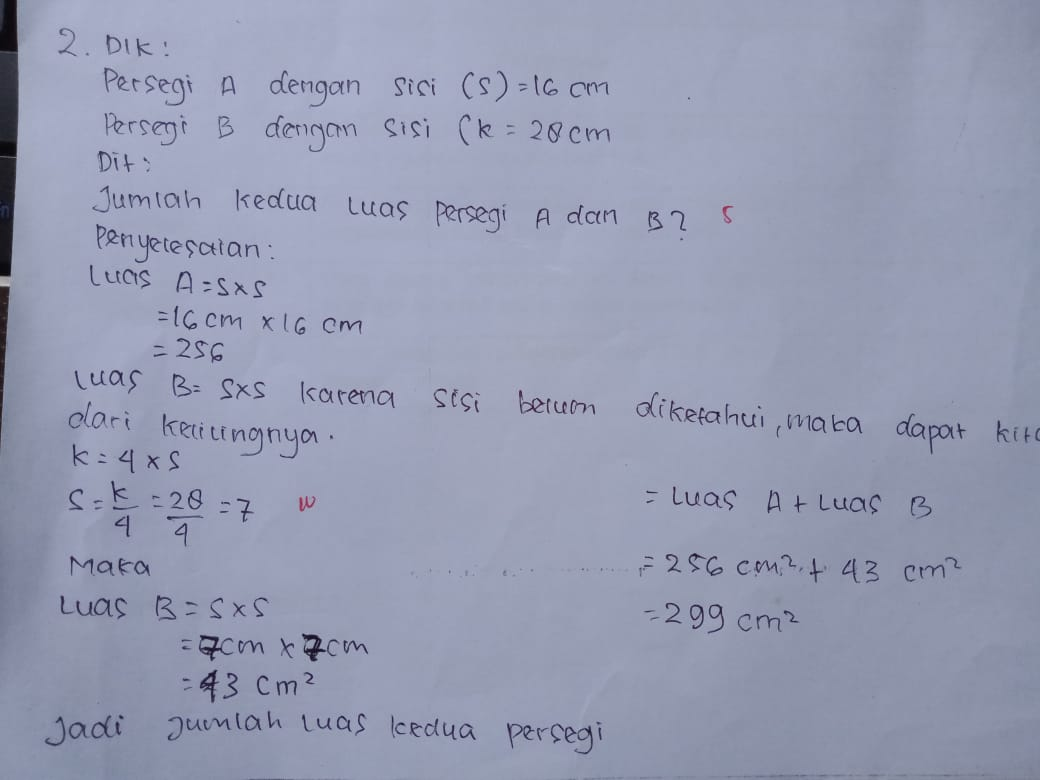 2. DIK:
Persegi A dengan sisi (s) = 16 cm
Persegi B dengan sisi (k = 28 cm
Dit:
Jumlah kedua luas persegi A dan B? s
Penyelesaian:
Luas A = s x s
= 16 cm x 16 cm
= 256
Luas B = s x s karena sisi belum diketahui, maka dapat kita
dari kelilingnya.
k = 4 x s
s = k/4 = 28/4 = 7 w
Maka
Luas B = s x s
= 7cm x 7cm
= 43 cm²
Jadi Jumlah luas kedua persegi
= Luas A + Luas B
= 256 cm² + 43 cm²
= 299 cm²